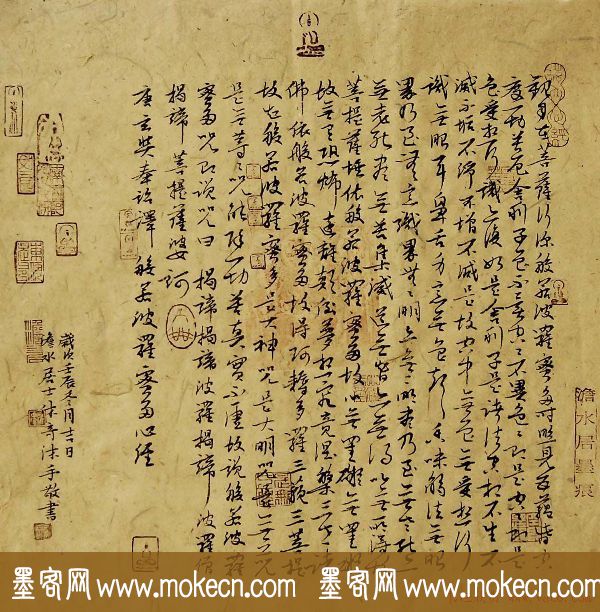 觀自在菩薩行深般若波羅蜜多時照見五蘊皆空
度一切苦厄舍利子色不異空空不異色色即是空空即是
色受想行識亦復如是舍利子是諸法空相不生不
滅不垢不淨不增不減是故空中無色無受想行
識無眼耳鼻舌身意無色聲香味觸法無眼
界乃至無意識界無無明亦無無明盡乃至無老死亦
無老死盡無苦集滅道無智亦無得以無所得故
菩提薩埵依般若波羅蜜多故心無罣礙無罣礙
故無有恐怖遠離顛倒夢想究竟涅槃三世諸
佛依般若波羅蜜多故得阿耨多羅三藐三菩提
故知般若波羅蜜多是大神咒是大明咒是無上咒
是無等等咒能除一切苦真實不虛故說般若波羅
蜜多咒即說咒曰 揭諦揭諦波羅揭諦 波羅僧
揭諦 菩提薩婆訶
唐玄奘奉詔譯 般若波羅蜜多心經
歲次壬辰冬月吉日
澹水居士 沐手敬書
澹水居墨痕
墨客网 www.mokecn.com 墨客网 www.mokecn.com